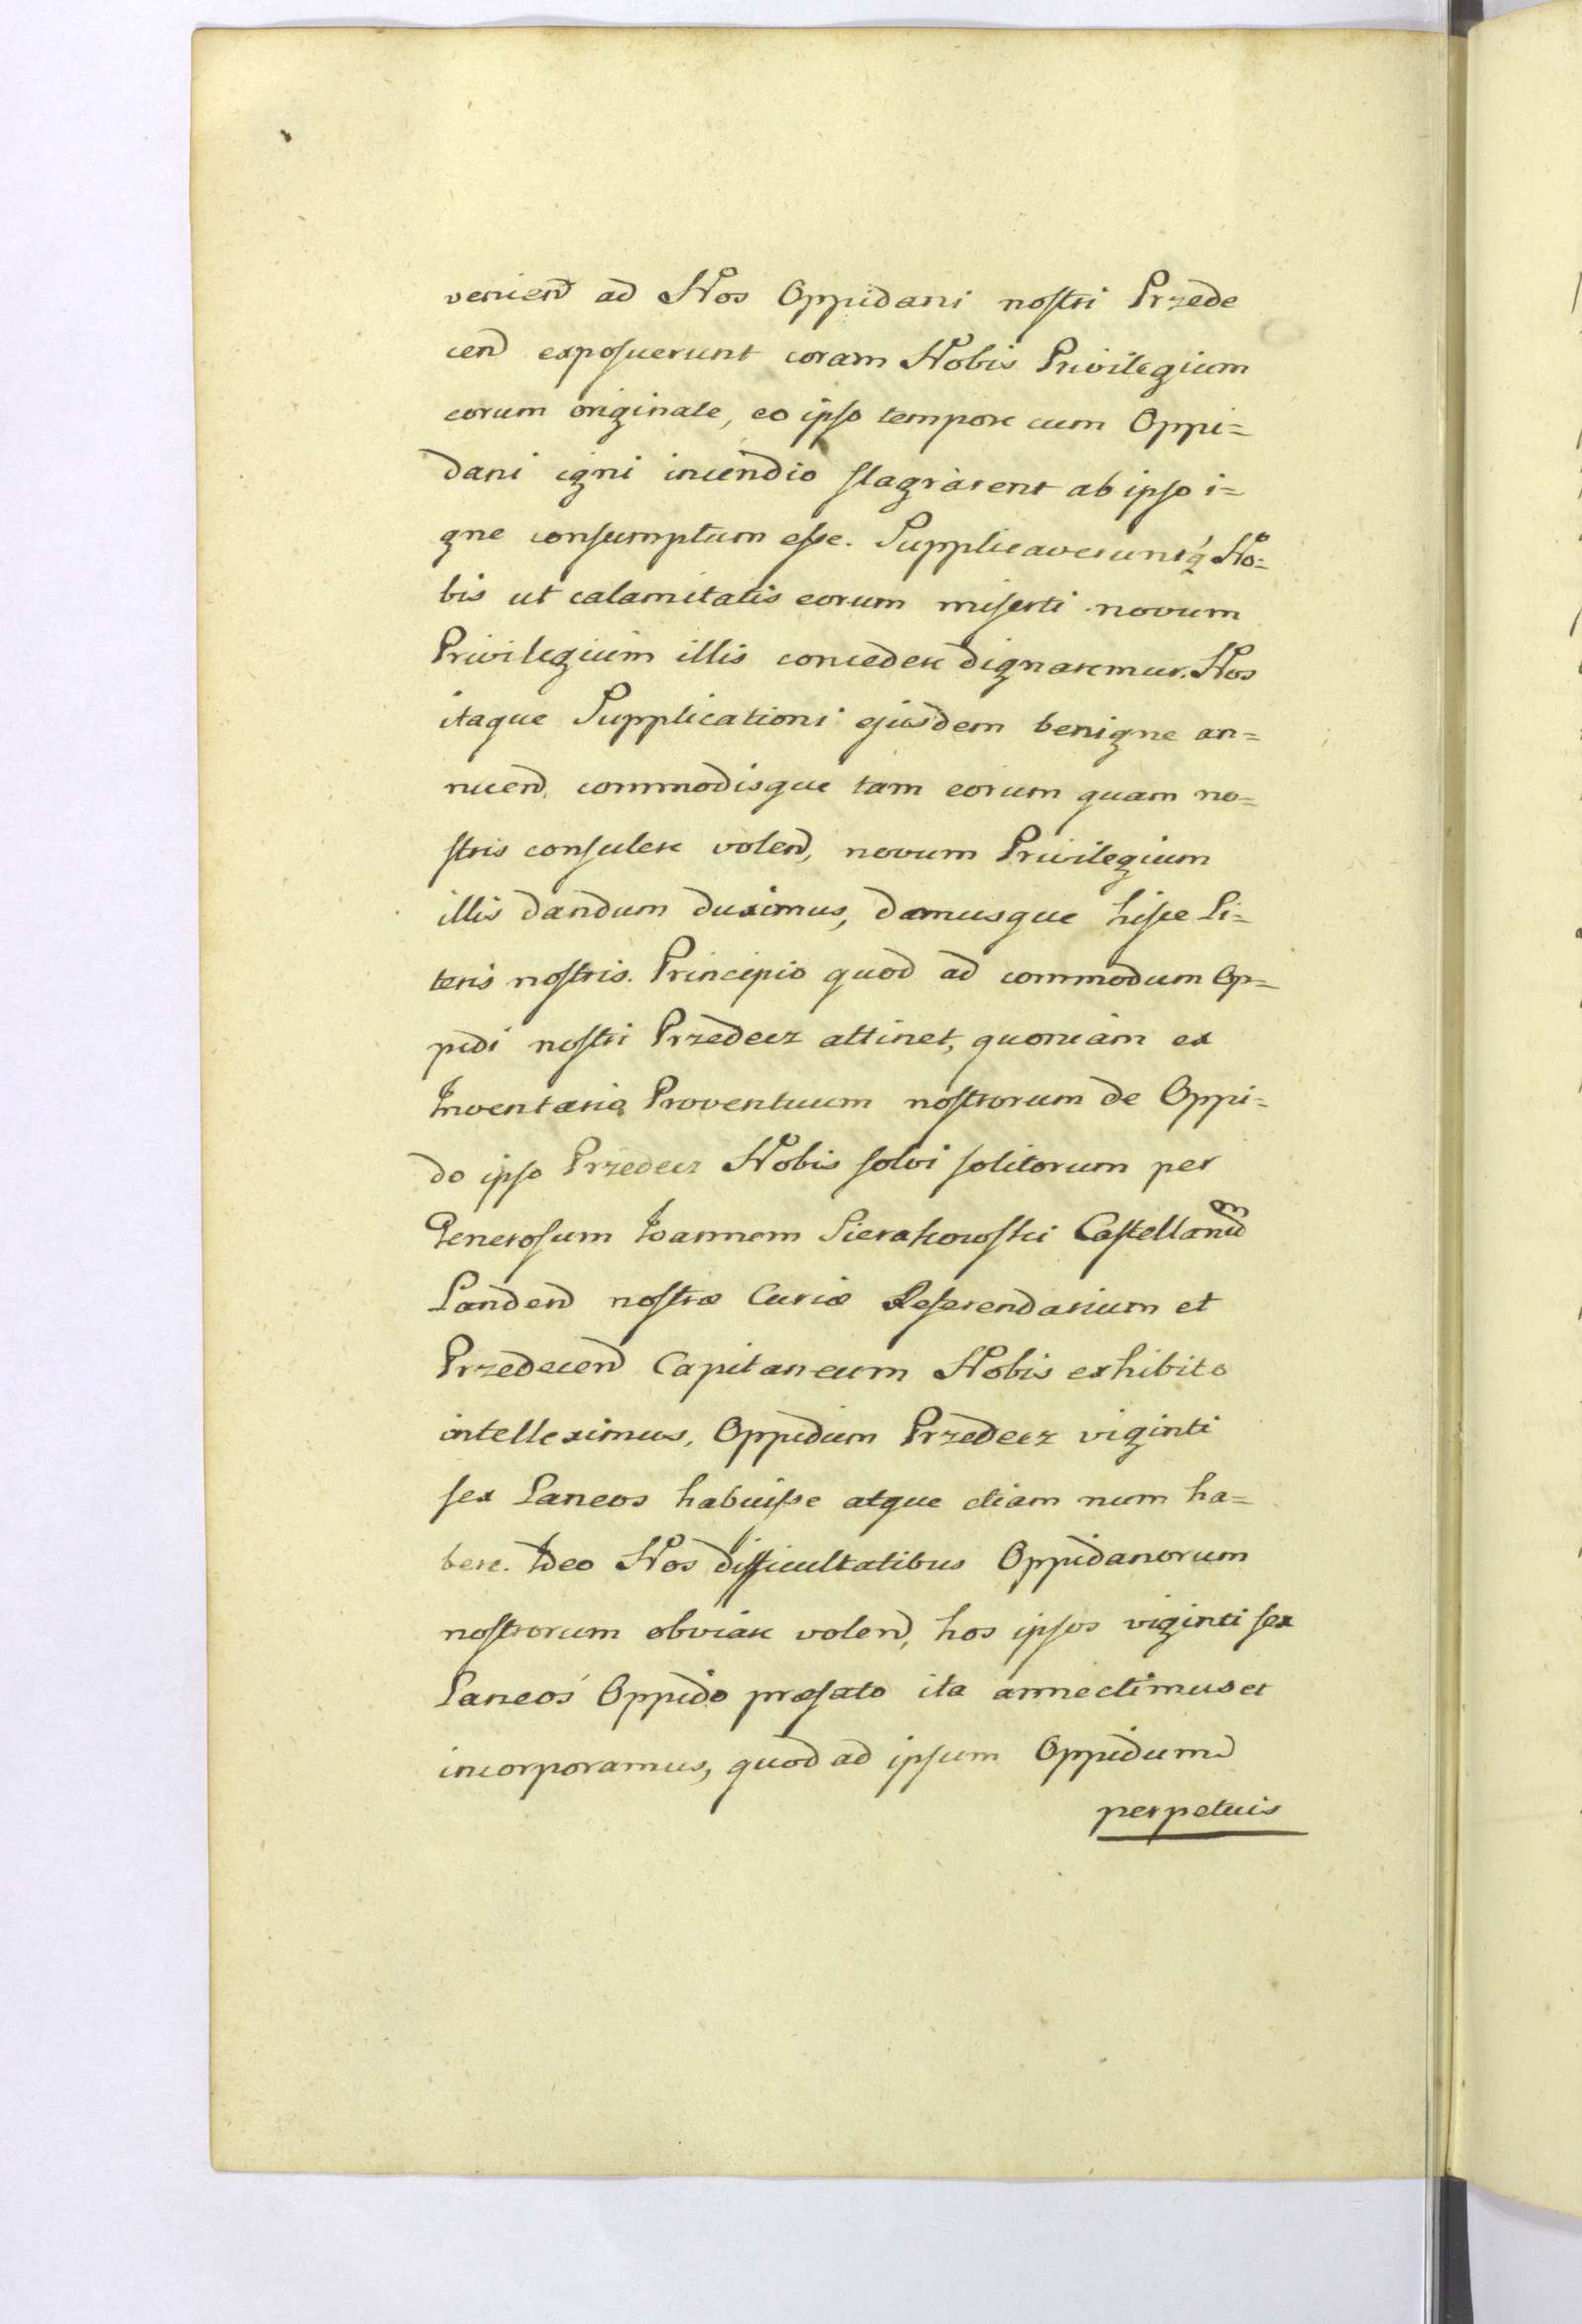 venien ad Nos Oppidani nostri Przede
cen exposuerunt coram Nobis Privilegium
eorum originale, eo ipso tempore cum Oppi=
dani igni incendio flagrarent ab ipso i=
gne consumptum esse. Supplicaveruntq́ No=
bis ut calamitatis eorum miserti novum
Privilegium illis concedere dignaremur. Nos
itaque Supplicationi ejusdem benigne an=
nuen, commodisque tam eorum quam no=
stris consulere volen, novum Privilegium
illis dandum duximus, damusque hisce Li=
teris nostris. Principio quod ad commodum Op=
pidi nostri Przedecz attinet, quoniam ex
Inventario Proventuum nostrorum de Oppi=
do ipso Przedecz Nobis solvi solitorum per
Generosum Ioannem Sierakowski Castellanum
Landen nostræ Curiæ Referendarium et
Przedecen Capitaneum Nobis exhibito
intelleximus, Oppidum Przedecz viginti
sex Laneos habuisse atque etiam num ha=
bere. Ideo Nos difficultatibus Oppidanorum
nostrorum obviare volen, hos ipsos viginti sex
Laneos Oppido præfato ita annectimus et
incorporamus, quod ad ipsum Oppidum
perpetuis